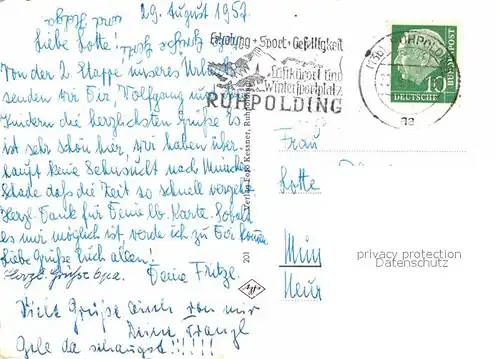 29. August 1957
Liebe Lotte!
Von der 2. Etappe unseres
senden wir Dir Wolfgang und
Kindern die herzlichsten Grüße. Es
ist sehr schön hier, wir haben über-
haupt keine Sehnsucht nach München
Schade daß die Zeit so schnell vergeht.
Herzl. Dank für Deine lb. Karte. Sobald
es mir möglich ist werde ich zu Dir
Liebe Grüße Euch allen!
Herzl. Grüße Deine Fritzl.
Viele Grüße auch von mir
Deine Franzl
Gele da schaugst!!!!!!
Erholung + Sport + Geselligkeit
Luftkurort und
Wintersportplatz
RUHPOLDING
RUHPOLDING
aa
10
DEUTSCHE
BUNDESPOST
201 Verlag Foto Kessner, Ruhpolding
Agfa
Frau
Lotte
Mün
privacy protection
Datenschutz